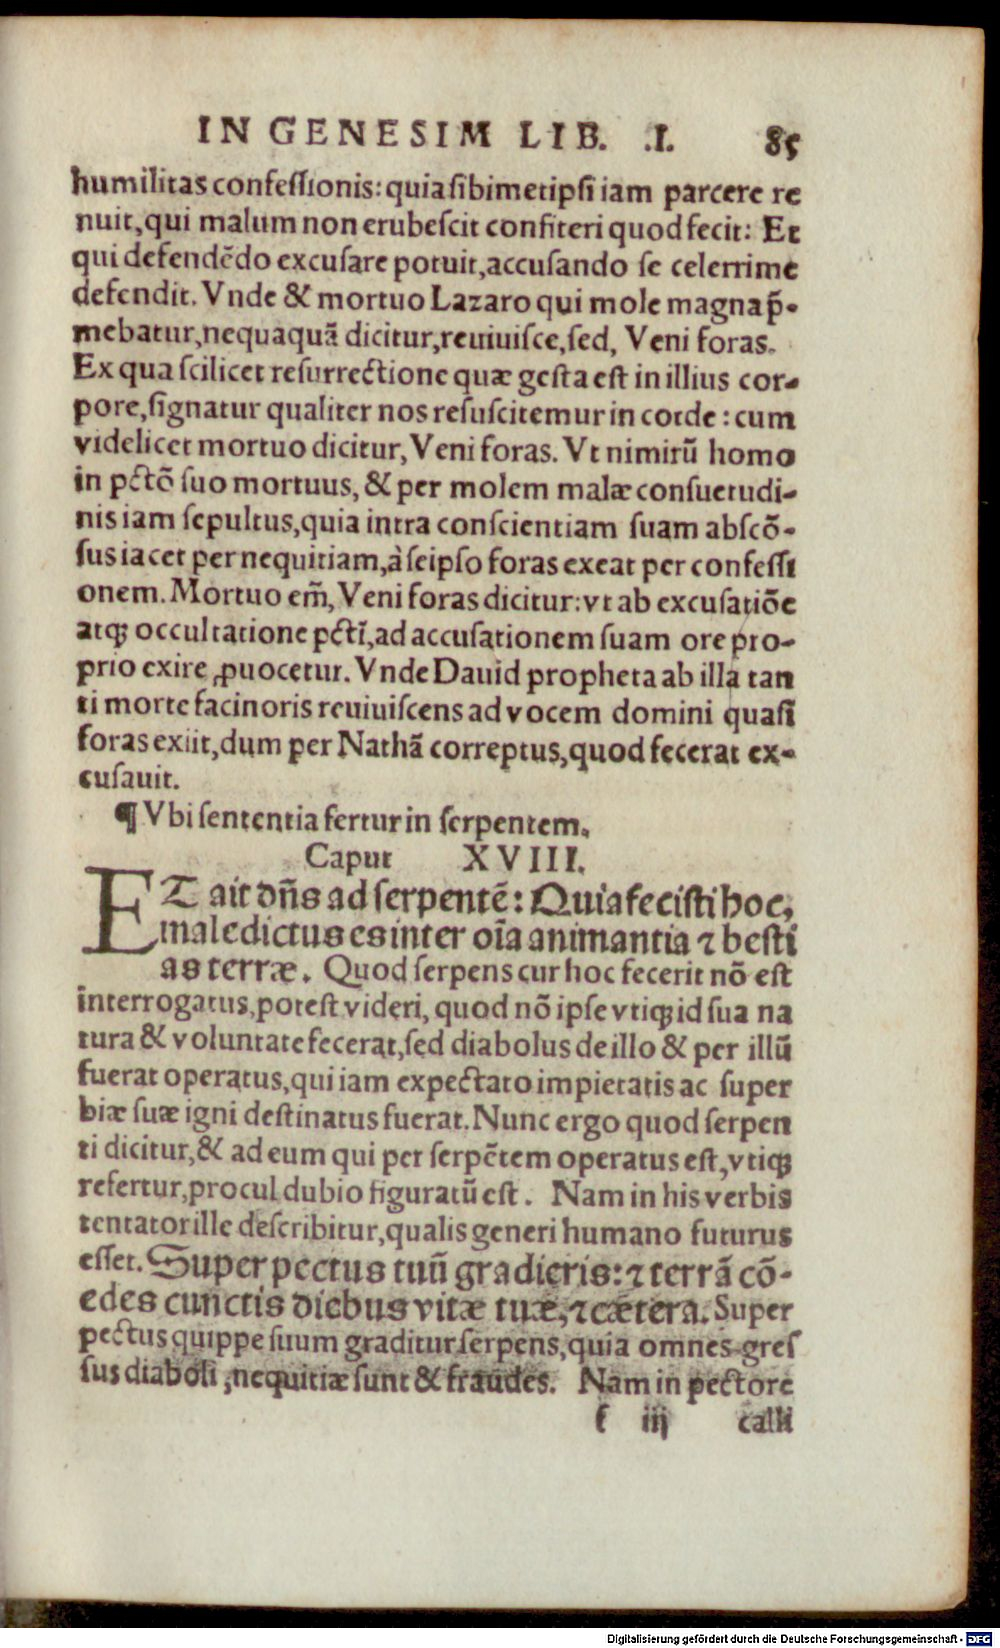 IN GENESIM LIB. .I. 85
humilitas confeſſionis: quia ſibimetipſi iam parcere re
nuit, qui malum non erubeſcit confiteri quod fecit: Et
qui defendẽdo excuſare potuit, accuſando ſe celerrime
defendit. Vnde & mortuo Lazaro qui mole magna p̃-
mebatur, nequaquã dicitur, reuiuiſce, ſed, Veni foras.
Ex qua ſcilicet reſurrectione quæ geſta eſt in illius cor-
pore, ſignatur qualiter nos reſuſcitemur in corde: cum
videlicet mortuo dicitur, Veni foras. Vt nimirũ homo
in pctõ ſuo mortuus, & per molem malæ conſuetudi-
nis iam ſepultus, quia intra conſcientiam ſuam abſcõ-
ſus iacet per nequitiam, à ſeipſo foras exeat per confeſſi
onem. Mortuo em̃, Veni foras dicitur: vt ab excuſatiõe
atqꝫ occultatione pcti̅, ad accuſationem ſuam ore pro-
prio exire ꝓuocetur. Vnde Dauid propheta ab illa tan
ti morte facinoris reuiuiſcens ad vocem domini quaſi
foras exiit, dum per Nathã correptus, quod fecerat ex-
cuſauit.
¶ Vbi ſententia fertur in ſerpentem.
Caput XVIII.
ET ait dñs ad ſerpentẽ: Quia feciſti hoc,
maledictus es inter oĩa animantia ⁊ beſti
as terræ. Quod ſerpens cur hoc fecerit nõ eſt
interrogatus, poteſt videri, quod nõ ipſe vtiqꝫ id ſua na
tura & voluntate fecerat, ſed diabolus de illo & per illũ
fuerat operatus, qui iam expectato impietatis ac ſuper
biæ ſuæ igni deſtinatus fuerat. Nunc ergo quod ſerpen
ti dicitur, & ad eum qui per ſerpẽtem operatus eſt, vtiqꝫ
refertur, procul dubio figuratũ eſt. Nam in his verbis
tentator ille deſcribitur, qualis generi humano futurus
eſſet. Super pectus tuũ gradieris: ⁊ terrã cõ-
edes cunctis diebus vitæ tuæ, ⁊ cætera. Super
pectus quippe ſuum graditur ſerpens, quia omnes greſ
ſus diaboli, nequitiæ ſunt & fraudes. Nam in pectore
f iij calli
Digitalisierung gefördert durch die Deutsche Forschungsgemeinschaft - DFG